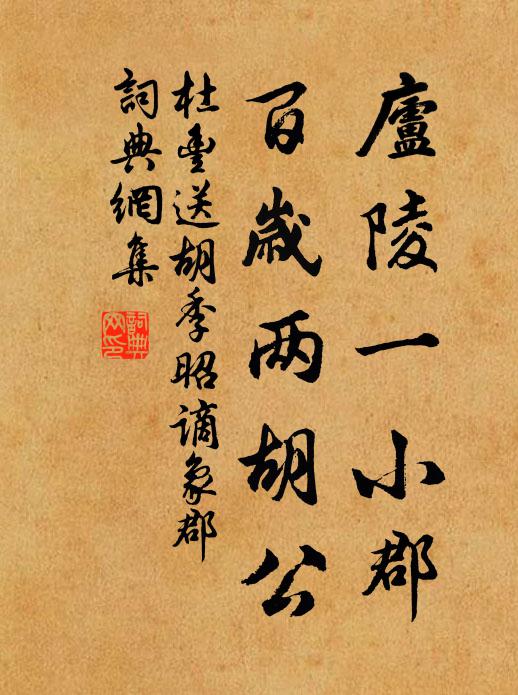 廬陵一小郡
百歲两胡公
杜耒送胡季昭謫象郡
詞典網集
詞典
网印